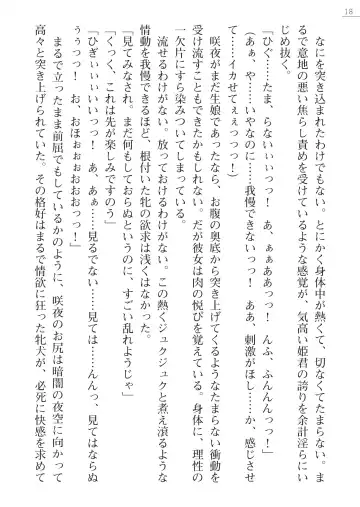 18
なにを突き込まれたわけでもない。とにかく身体中が熱くて、切なくてたまらない。ま
るで意地の悪い焦らし責めを受けているような感覚が、気高い姫君の誇りを余計淫らにい
じめ抜く。
「ひぐ……たま、らないぃぃっっ! あ、ぁぁああっっ! んふ、ふんんんっっ!
(あぁ、や……いやなのに……我慢できないっっ! ああ、刺激がほし、か、感じさせ
て……イカせてぇぇっっっ!)
咲夜がまだ生娘であったなら、お腹の奥底から突き上げてくるようなたまらない衝動を
受け流すこともできたかもしれない。だが彼女は肉の悦びを覚えている。身体に、理性の
一欠片にすら染みついてしまっている。
流せるわけがない。放っておけるわけがない。この熱くジュクジュクと煮え滾るような
情動を我慢できるほど、根付いた牝の欲求は浅くはなかった。
「見てみなされ。まだ何もしておらぬというのに、すごい乱れようじゃ」
「くっく、これは先が楽しみですのう」
「ひぎぃいぃいいっっ! あ、あぁ……見るでない……見ては……んんっ、見てはならぬ
ぅぅっっ! お、おほぉぉぉおおっっ!
まるで立ったまま前屈でもしているかのように、咲夜のお尻は暗闇の夜空に向かって
高々と突き上げられていた。その格好はまるで情欲に狂った牝犬が、必死に快感を求めて